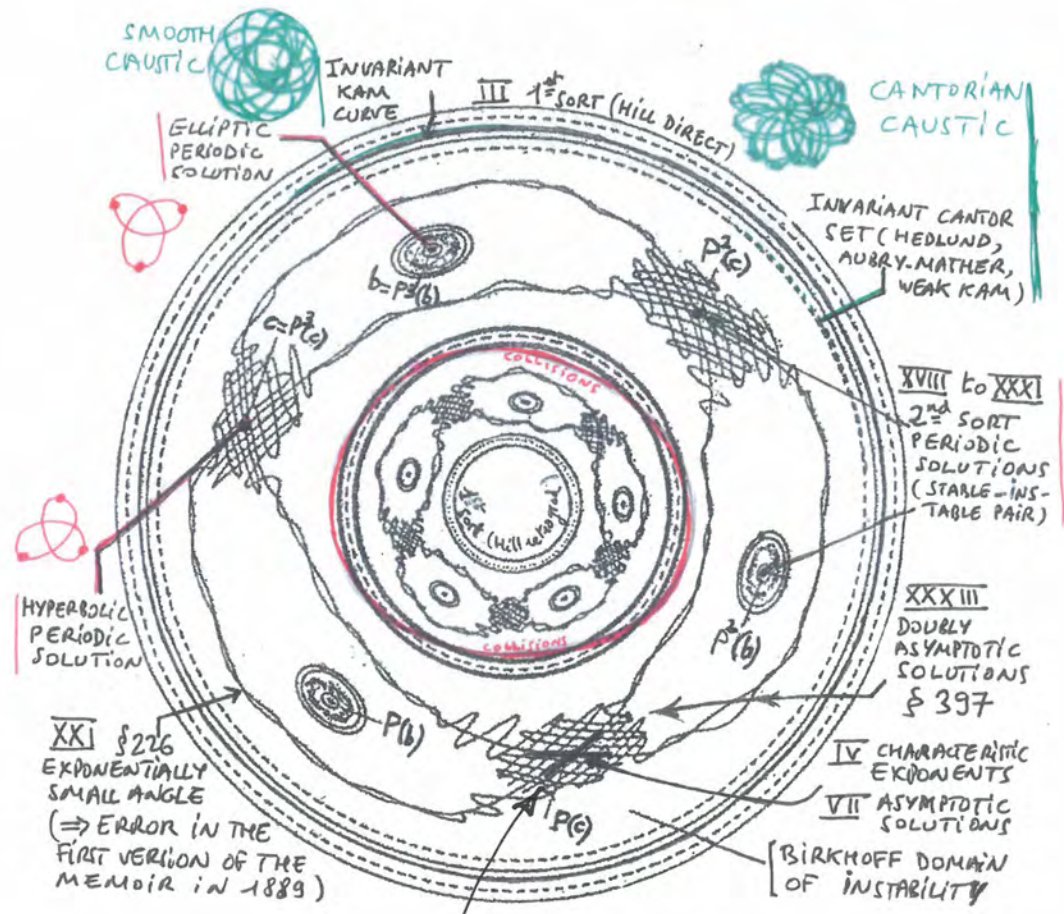 SMOOTH
CAUSTIC
INVARIANT
KAM
CURVE
III 1st SORT (HILL DIRECT)
CANTORIAN
CAUSTIC
ELLIPTIC
PERIODIC
SOLUTION
INVARIANT CANTOR
SET (HEDLUND,
AUBRY-MATHER,
WEAK KAM)
b=P³(b)
P²(c)
c=P³(c)
COLLISIONS
XVIII to XXXI
2nd SORT
PERIODIC
SOLUTIONS
(STABLE-INS-
TABLE PAIR)
1st
Sort (Hill retrograd)
HYPERBOLIC
PERIODIC
SOLUTION
COLLISIONS
P²(b)
XXXIII
DOUBLY
ASYMPTOTIC
SOLUTIONS
§ 397
P(b)
XXI §226
EXPONENTIALLY
SMALL ANGLE
(⇒ ERROR IN THE
FIRST VERSION OF THE
MEMOIR IN 1889)
P(c)
IV CHARACTERISTIC
EXPONENTS
VII ASYMPTOTIC
SOLUTIONS
[BIRKHOFF DOMAIN
OF INSTABILITY